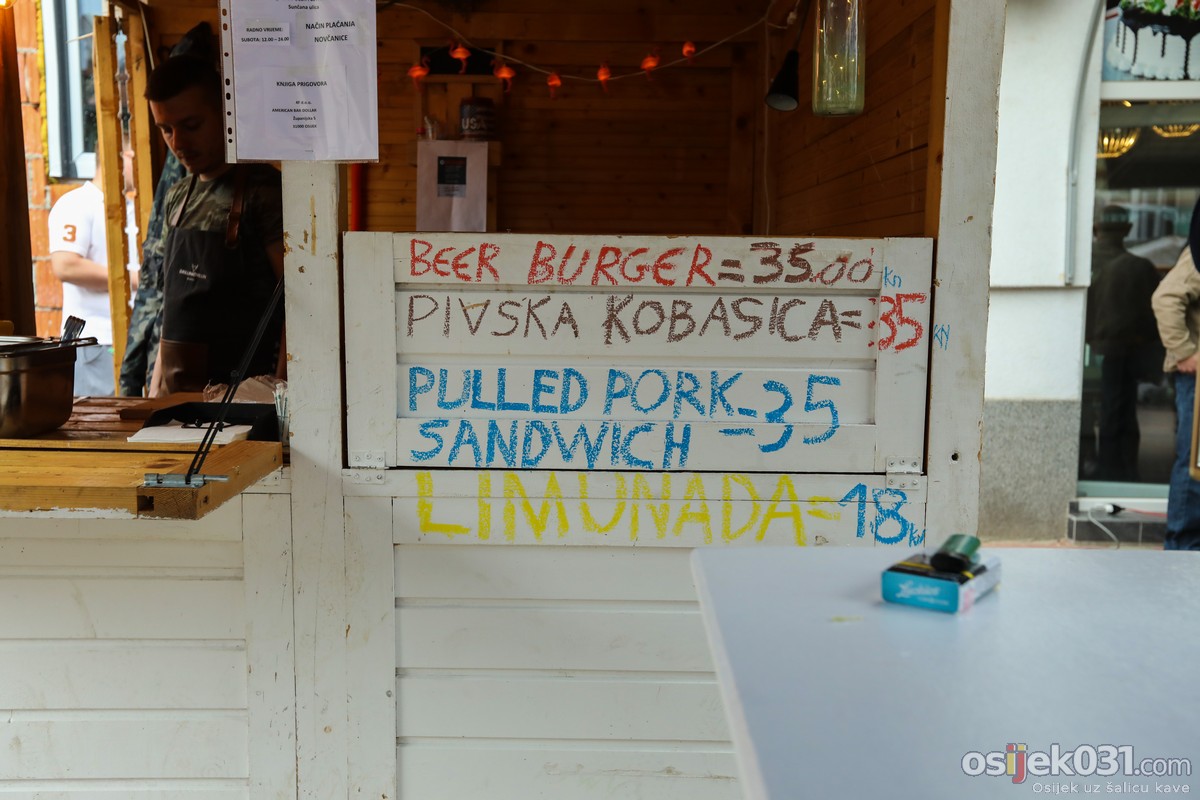 Sunčana ulica
RADNO VRIJEME:
SUBOTA: 12.00 – 24.00
NAČIN PLAĆANJA
NOVČANICE
KNJIGA PRIGOVORA
AMERICAN BAR DOLLAR
Županijska 5
31000 OSIJEK
USA
3
BEER BURGER = 35.00 kn
PIVSKA KOBASICA = 35 kn
PULLED PORK
SANDWICH = 35
LIMUNADA = 18 kn
osijek031.com
Osijek uz šalicu kave